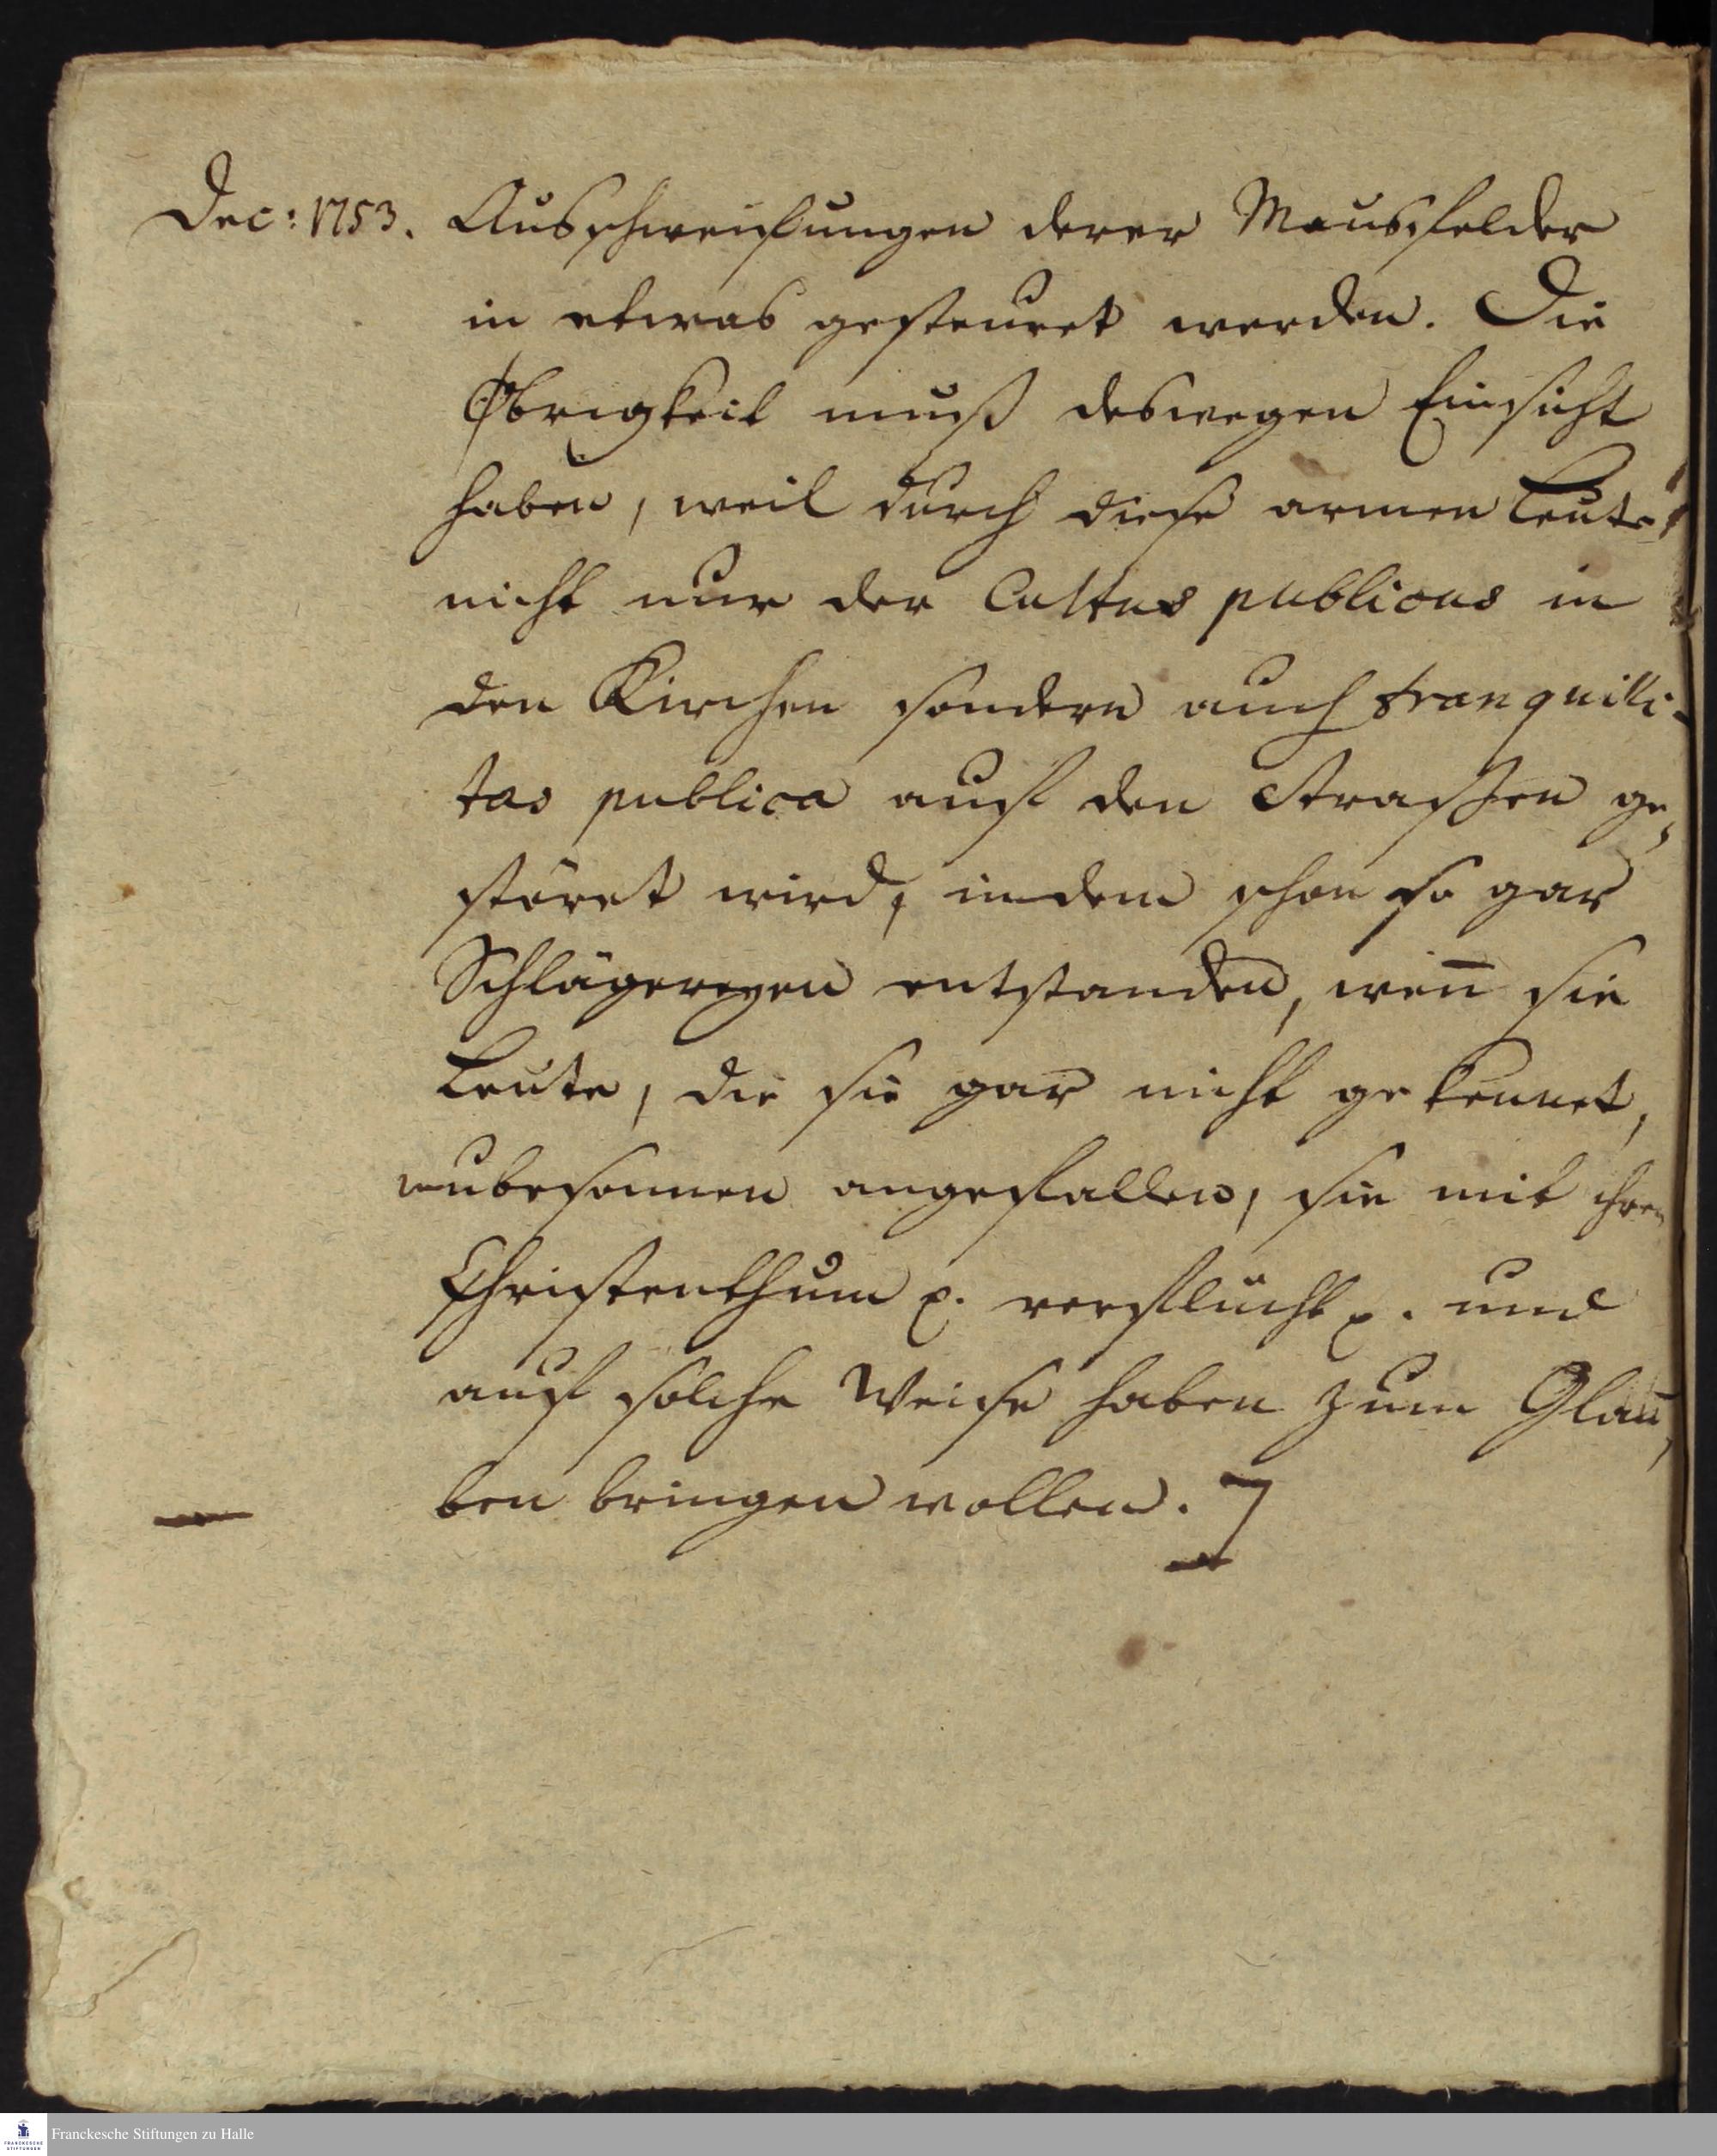 Dec: 1753.
Ausschweifungen derer Mansfelder
in etwas gesteuret werden. Die
Obrigkeit muß deswegen Einsicht
haben, weil durch diese armen Leute
nicht nur der Cultus publicus in
den Kirchen sondern auch tranquilli-
tas publica auf den Straßen ge,
störet wird, indem schon so gar
Schlägereyen entstanden, wen̄ sie
Leute, die sie gar nicht gekennet,
unbesonnen angefallen, sie mit ihren
Christenthum p. verflucht p. und
auf solche Weise haben zum Glau,
ben bringen wollen. ]
Franckesche Stiftungen zu Halle
FRANCKESCHE
STIFTUNGEN